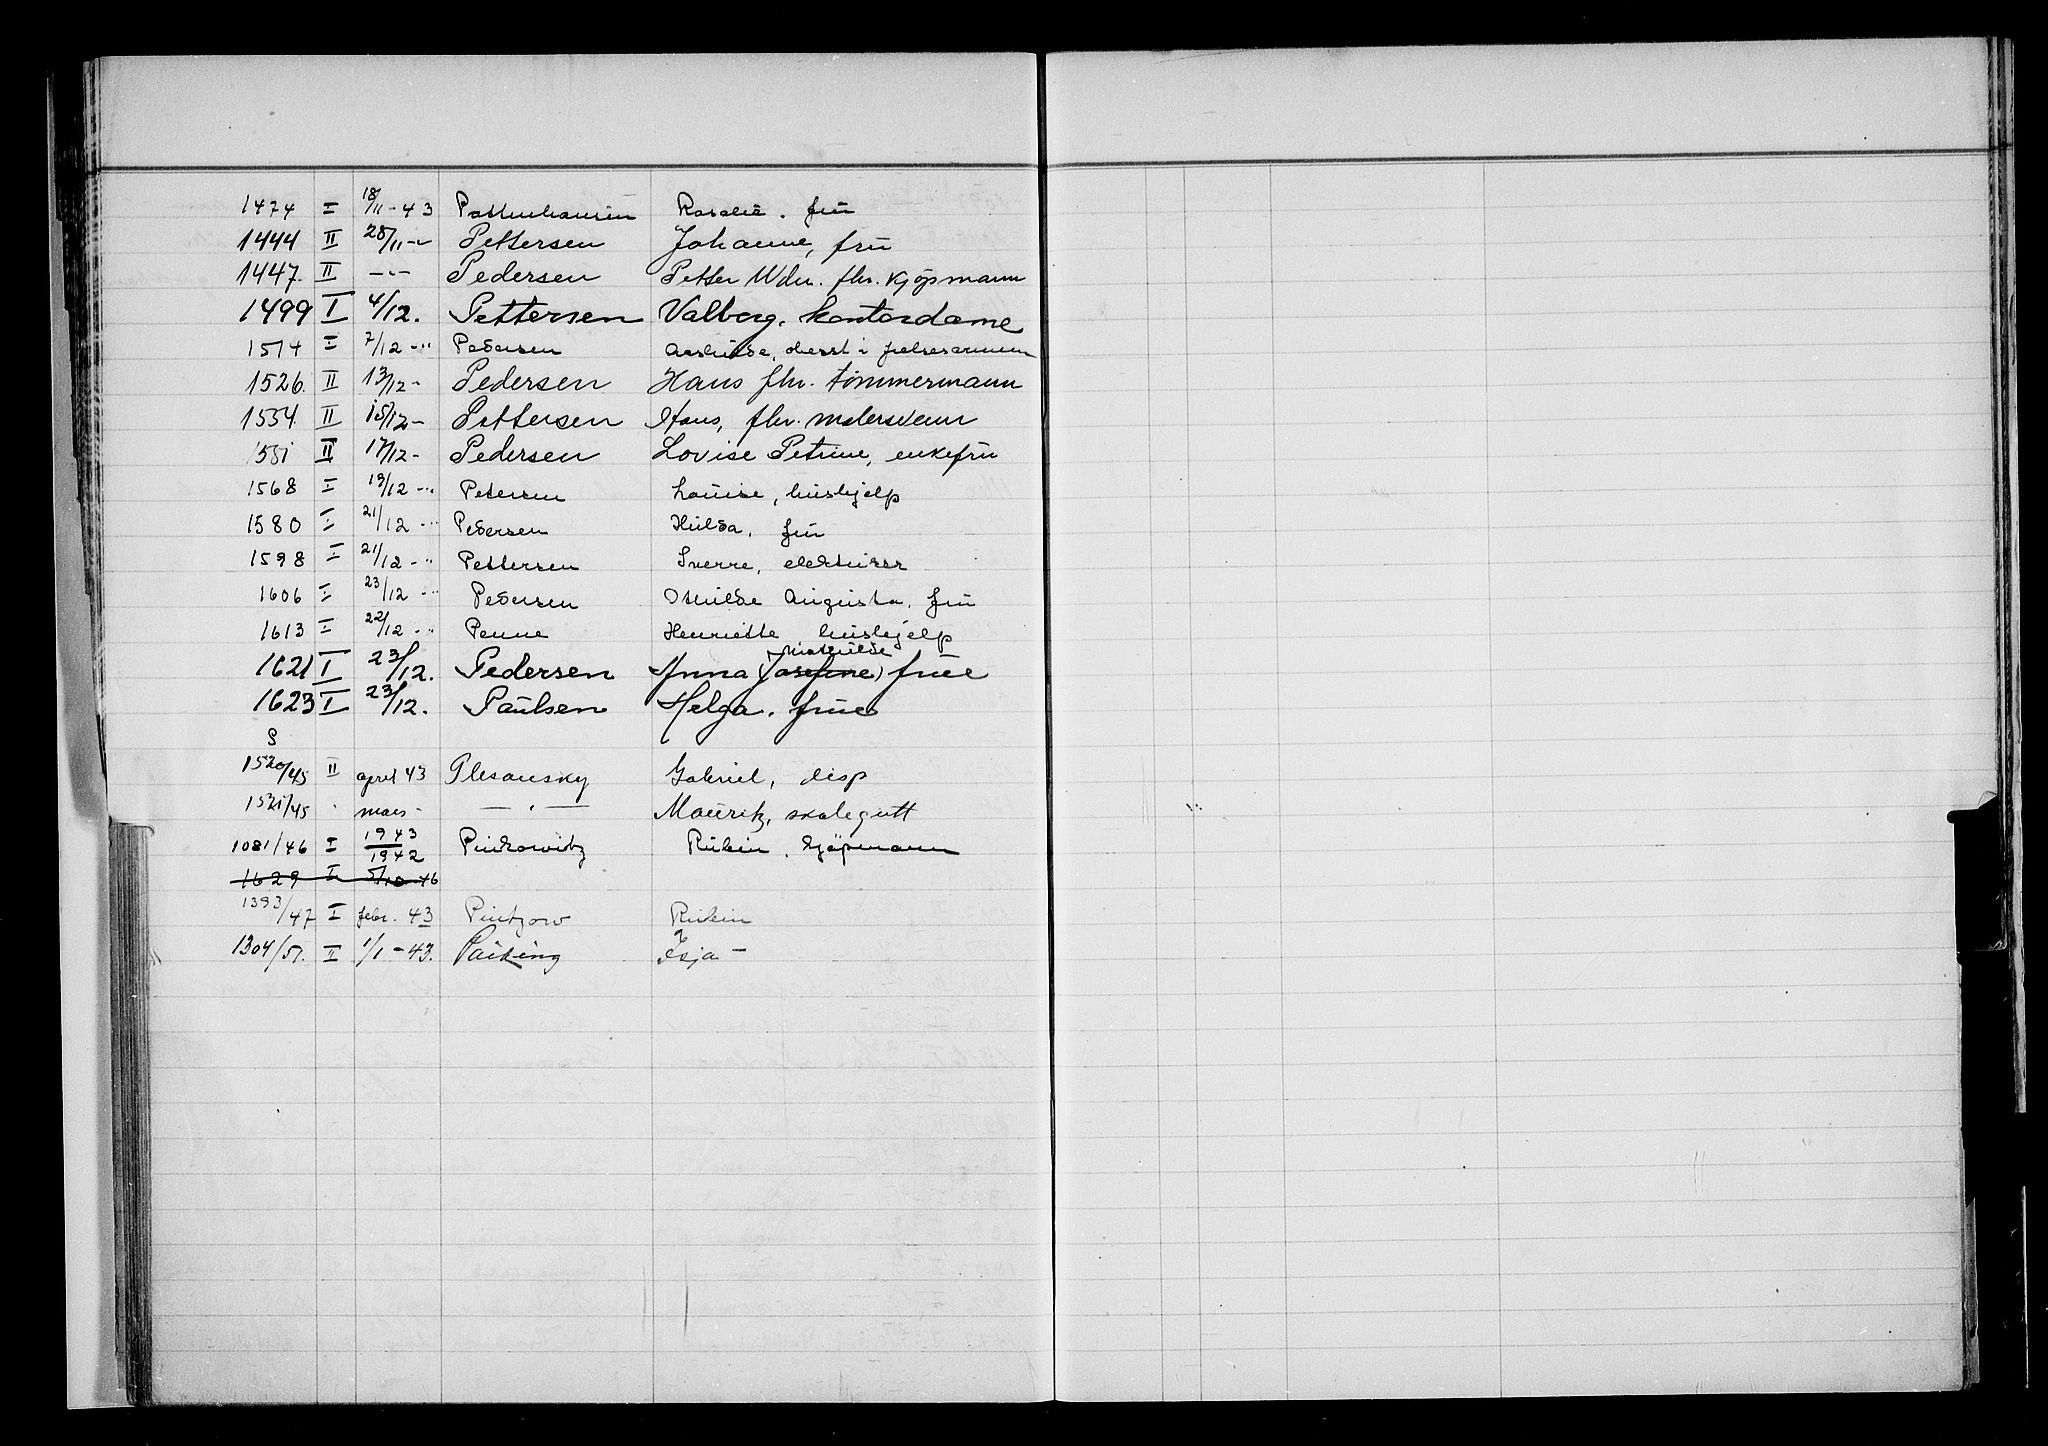 1474 I 18/11-43 Pattenhausen Rosalie. frü
1444 II 28/11-" Pettersen Johanne, frü
1447. II -"- Pedersen Petter fhr. kjöpmann
1499 I 4/12. Pettersen Valborg. kontordame
1514 I 7/12-" Pedersen oberst i frelsesarmeen
1526. II 13/12- Pedersen Hans fhr. tömmermann
1534. II 15/12- Pettersen Hans, fhr. malersvenn
1551 II 17/12- Pedersen Lovise Petrine, enkefrü
1568 I 19/12-" Petersen Louise, hushjelp
1580 I 21/12-" Pedersen Hulda, frü
1598 I 21/12-" Pettersen Sverre, elektriker
1606 I 23/12-" Pedersen Othilde Augusta, frü
1613 I 22/12-" Penne Henriette hushjelp
Mathilde
1621 I 23/12. Pedersen Anna (Josefine) früe
1623 I 23/12. Paulsen Helga. früe
S
1520/45 II april 43 Plesansky Gabriel, disp
1521/45 " mars - -"- Mauritz, skolegutt
1081/46 I 1943 1942 Pinkowitz Rubin, kjöpmann
1629 I 5/10-46
1393/47 I febr. 43 Pintzow Rubin
1304/51. II 1/1-43. Paiking Isja -